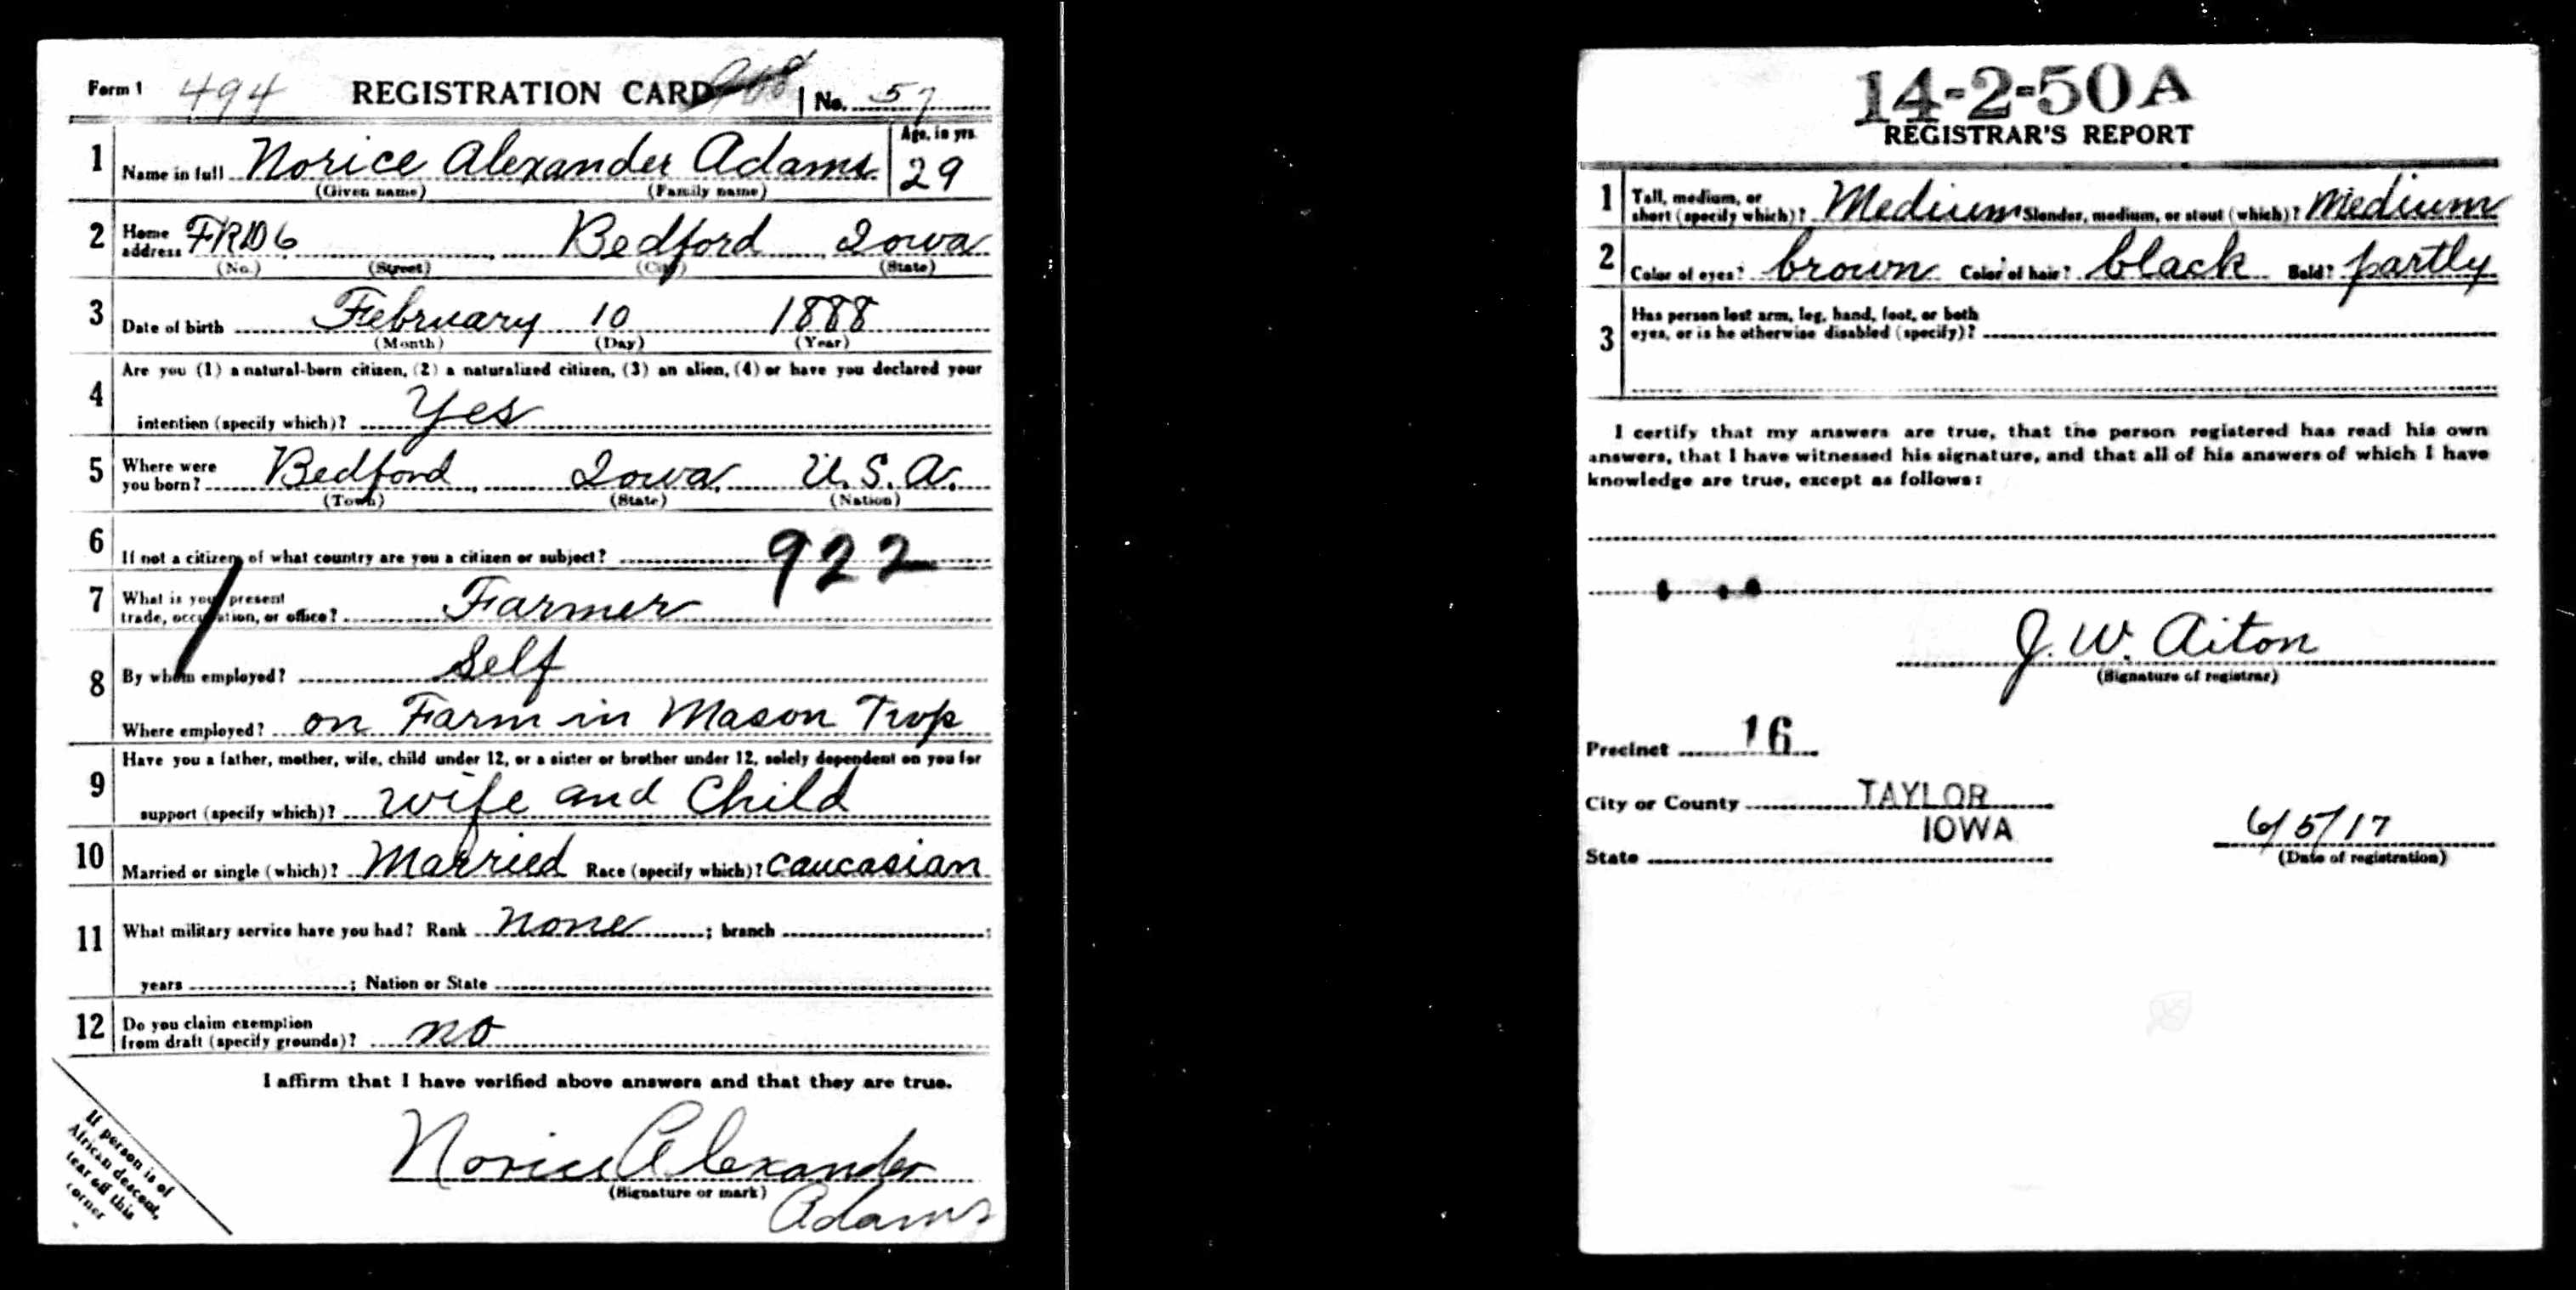 Form 1 494 REGISTRATION CARD No. 57
1 Name in full Norice Alexander Adams Age, in yrs. 29
(Given name) (Family name)
2 Home address FRD 6 Bedford Iowa
(No.) (Street) (City) (State)
3 Date of birth February 10 1888
(Month) (Day) (Year)
4 Are you (1) a natural-born citizen, (2) a naturalized citizen, (3) an alien, (4) or have you declared your
intention (specify which)? Yes
5 Where were you born? Bedford, Iowa, U.S.A.
(Town) (State) (Nation)
6 If not a citizen of what country are you a citizen or subject? 922
7 What is your present
trade, occupation, or office? Farmer
8 By whom employed? Self
Where employed? on Farm in Mason Trop
9 Have you a father, mother, wife, child under 12, or a sister or brother under 12, solely dependent on you for
support (specify which)? wife and Child
10 Married or single (which)? Married Race (specify which)? caucasian
11 What military service have you had? Rank none ; branch ;
years ; Nation or State
12 Do you claim exemption
from draft (specify grounds)? no
I affirm that I have verified above answers and that they are true.
Norice Alexander
(Signature or mark)
Adams
If person is of
African descent,
tear off this
corner
14-2-50 A
REGISTRAR'S REPORT
1 Tall, medium, or
short (specify which)? Medium Slender, medium, or stout (which)? Medium
2 Color of eyes? brown Color of hair? black Bald? partly
3 Has person lost arm, leg, hand, foot, or both
eyes, or is he otherwise disabled (specify)?
I certify that my answers are true, that the person registered has read his own
answers, that I have witnessed his signature, and that all of his answers of which I have
knowledge are true, except as follows:
J. W. Aiton
(Signature of registrar)
Precinct 16
City or County TAYLOR
State IOWA
6/5/17
(Date of registration)